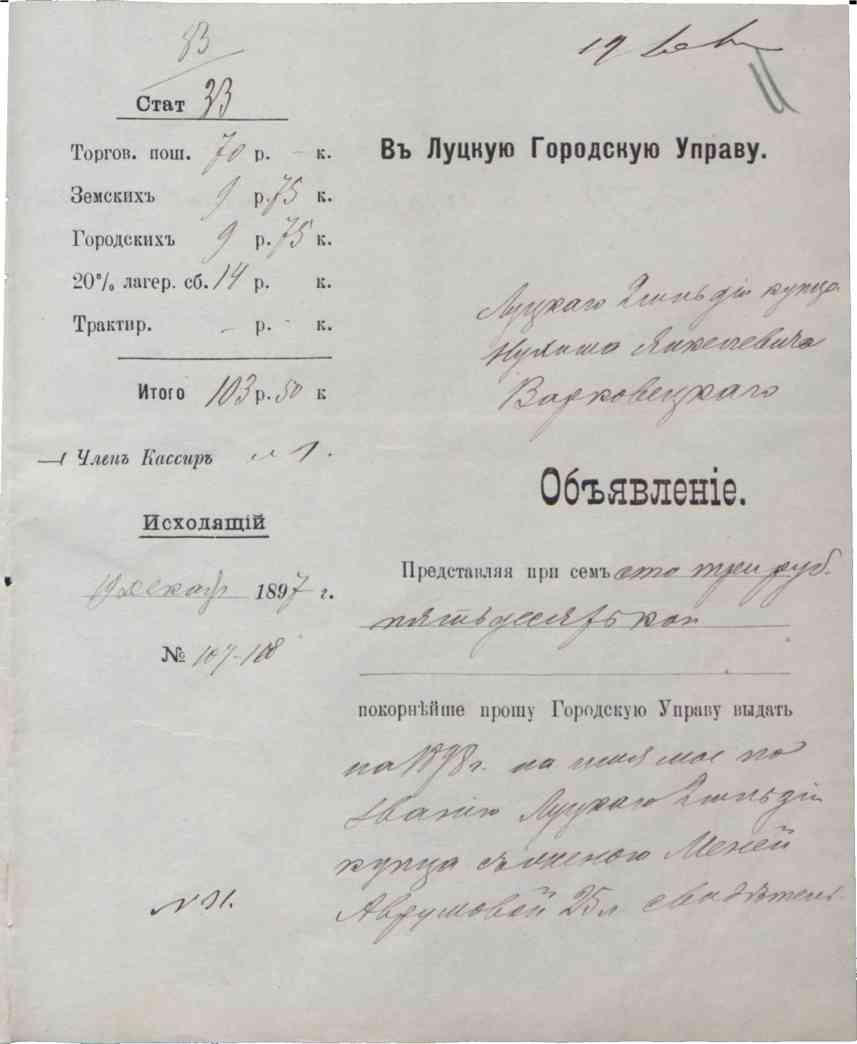 33
Стат 33
Торгов. пош. 70 р. - к.
Земскихъ 9 р. 75 к.
Городскихъ 9 р. 75 к.
20% лагер. сб. 14 р. к.
Трактир. - р. - к.
Итого 103 р. 50 к
Членъ Кассиръ
Исходящій
19 декабр 1897 г.
№ 107-108
19
Въ Луцкую Городскую Управу.
Луцкаго 2 гильдіи купца
Янкелевича
Варковецкаго
Объявленіе.
Представляя при семъ сто три руб.
пятьдесятъ коп
покорнѣйше прошу Городскую Управу выдать
на 1898 г. на имя мое по
званію Луцкаго 2 гильдіи
купца съ женою Меней
Аврумовой 25 л свидѣтель